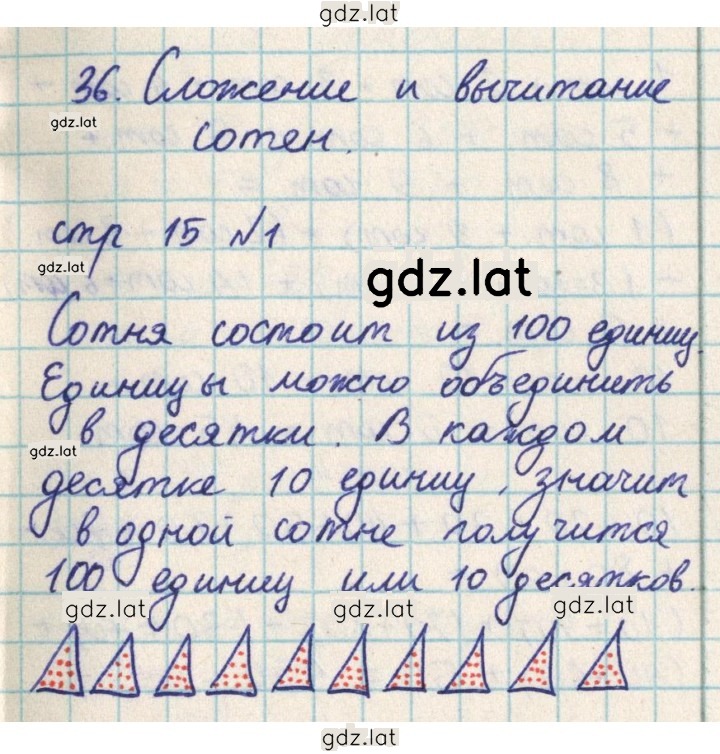 gdz.lat
36. Сложение и вычитание
gdz.lat
сотен.
стр 15 №1
gdz.lat
gdz.lat
Сотня состоит из 100 единиц.
Единицы можно объединить
в десятки В каждом
gdz.lat
десятке 10 единиц, значит
в одной сотне получится
100 единиц или 10 десятков.
gdz.lat gdz.lat gdz.lat
gdz.lat